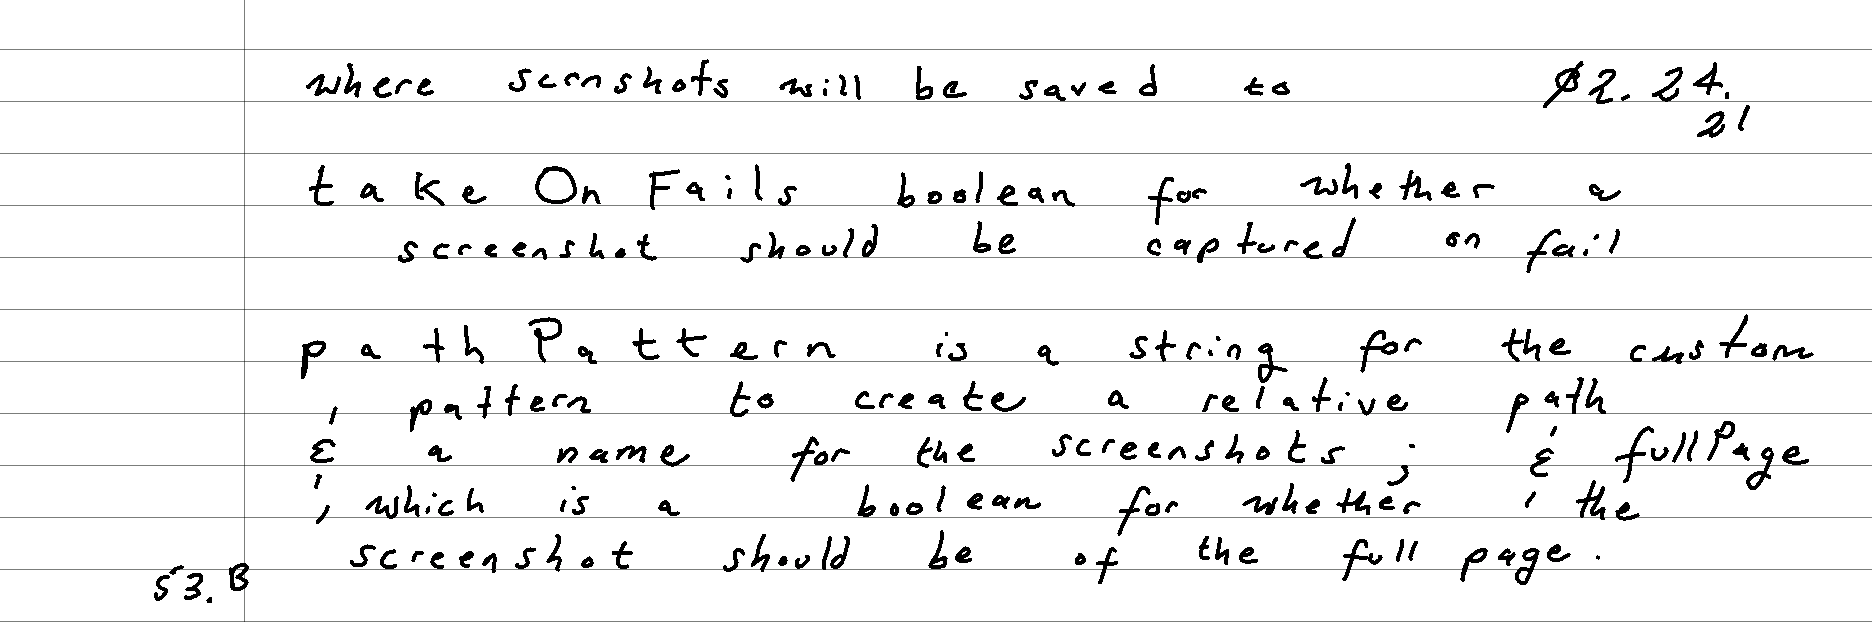 where scrnshots will be saved to $2.24.
21
takeOnFails boolean for whether a
screenshot should be captured on fail
pathPattern is a string for the custom
pattern to create a relative path
& a name for the screenshots; & fullPage
, which is a boolean for whether the
screenshot should be of the full page.
53.B